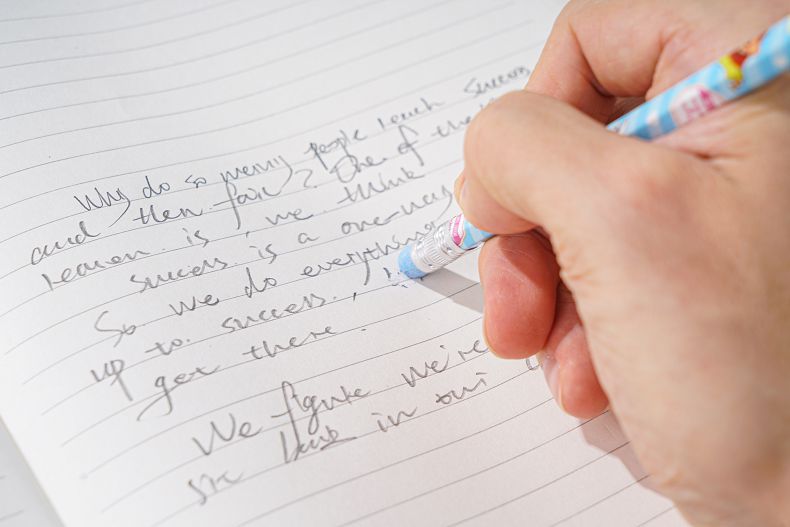 Why do so many people reach success
and then fair? One of the
reason is, we think
success is a one-way
So we do everything
up to success,
get there.
We figure we're
sit back in our